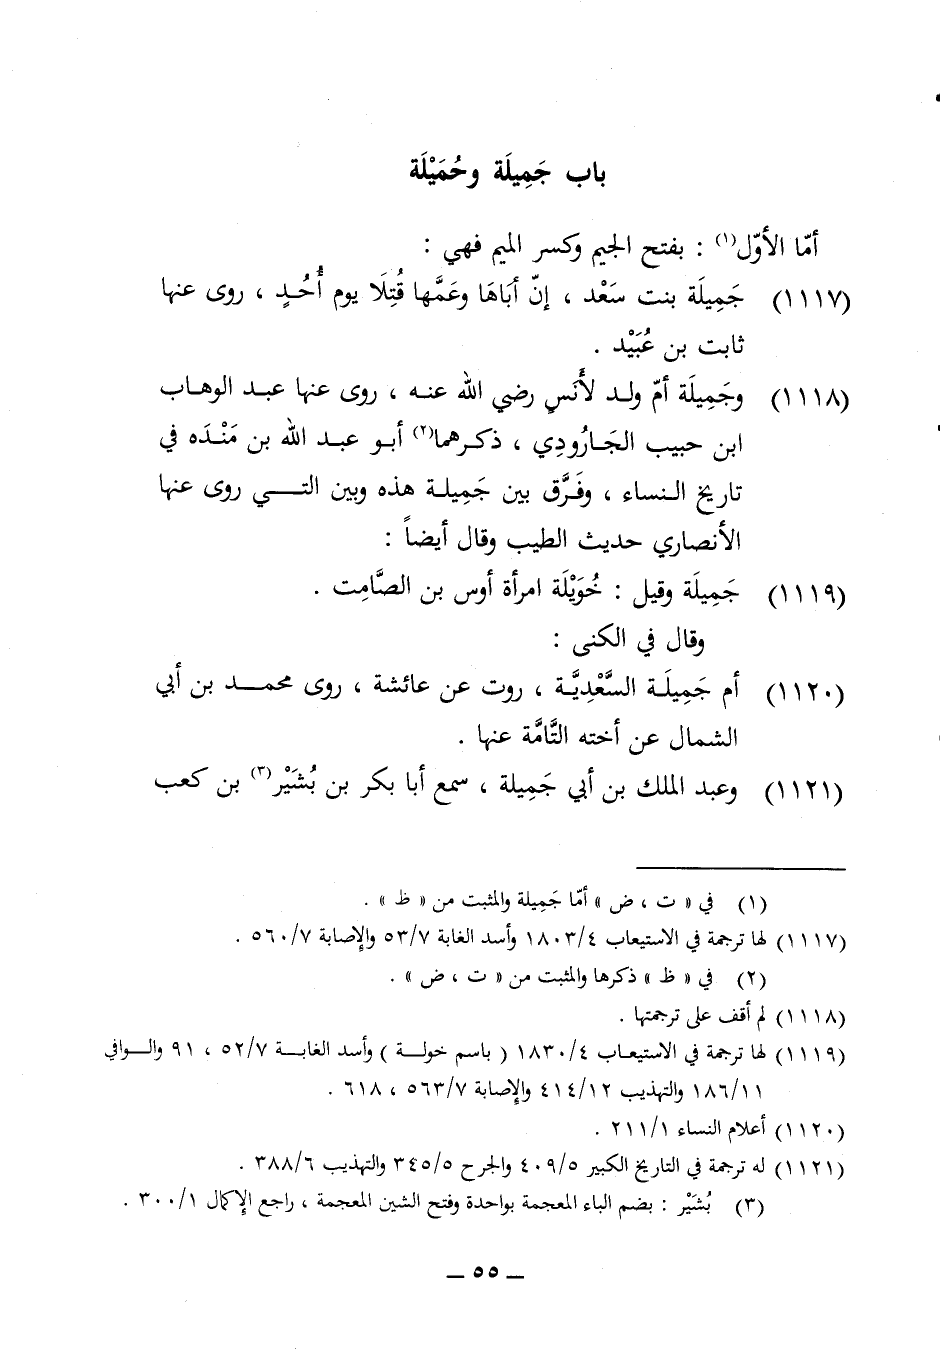 باب جَمِيلَة وحُمَيْلَة
أمّا الأوّل(١) : بفتح الجيم وكسر الميم فهي :
(١١١٧) جَمِيلَة بنت سَعْد ، إنّ أبَاهَا وعَمَّها قُتِلَا يوم أُحُـدٍ ، روى عنها
ثابت بن عُبَيْد .
(١١١٨) وجَمِيلَة أمّ ولـد لأَنَسٍ رضي الله عنـه ، روى عنها عبـد الوهاب
ابن حبيب الجَـارُودِي ، ذكـرهمـا(٢) أبـو عبـد الله بن مَنْـدَه في
تاريخ الـنساء ، وفَرَّق بين جَمِيلـة هذه وبين التـــي روى عنها
الأنصاري حديـث الطيب وقال أيضاً :
(١١١٩) جَمِيلَة وقيل : خُوَيْلَة امرأة أوس بن الصَّامِت .
وقال في الكنى :
(١١٢٠) أم جَمِيلَـة السَّعْدِيَّـة ، روت عن عائشة ، روى محمــد بن أبي
الشمال عن أخته التَّامَّة عنها .
(١١٢١) وعبد الملك بن أبي جَمِيلة ، سمع أبا بكر بن بُشَيْر(٣) بن كعب
(١) في « ت ، ض » أمّا جَمِيلة والمثبت من « ظ » .
(١١١٧) لها ترجمة في الاستيعاب ١٨٠٣/٤ وأسد الغابة ٥٣/٧ والإصابة ٥٦٠/٧ .
(٢) في « ظ » ذكرها والمثبت من « ت ، ض » .
(١١١٨) لم أقف على ترجمتها .
(١١١٩) لها ترجمة في الاستيعـاب ١٨٣٠/٤ ( باسم خولـــة ) وأسد الغابــة ٥٢/٧ ، ٩١ والـــوافي
١٨٦/١١ والتهذيب ٤١٤/١٢ والإصابة ٥٦٣/٧ ، ٦١٨ .
(١١٢٠) أعلام النساء ٢١١/١ .
(١١٢١) له ترجمة في التاريخ الكبير ٤٠٩/٥ والجرح ٣٤٥/٥ والتهذيب ٣٨٨/٦ .
(٣) بُشَيْر : بضم الباء المعجمة بواحدة وفتح الشين المعجمة ، راجع الإكمال ٣٠٠/١ .
ـ ٥٥ ـ